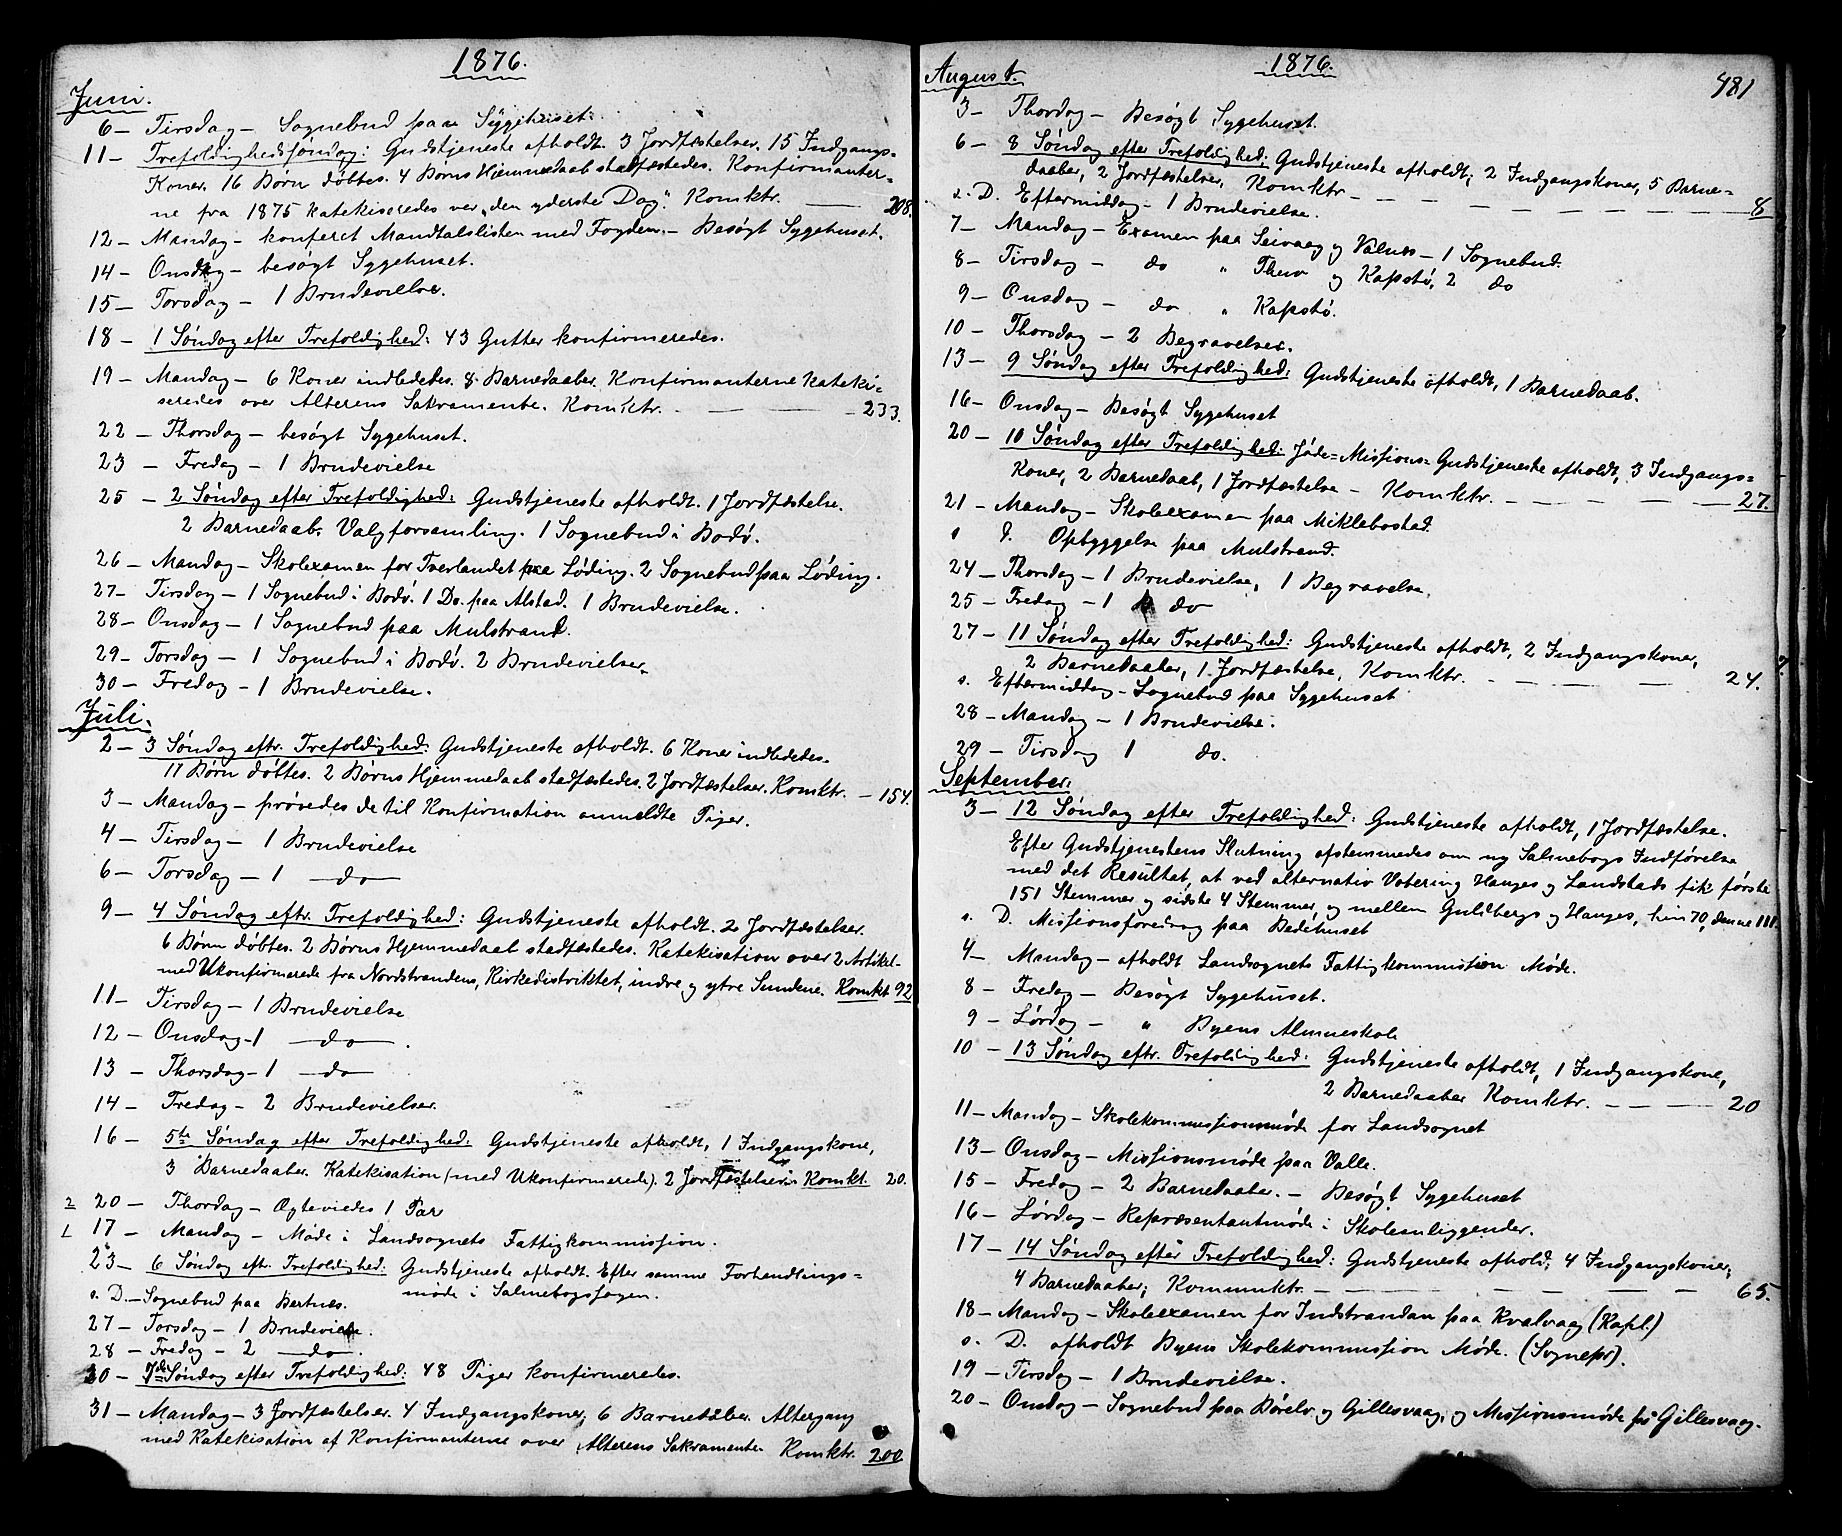 1876.
Juni.
6 – Tirsdag – Sognebud paa Sygehuset.
11 – Trefoldighedssøndag: Gudstjeneste afholdt. 3 Jordfæstelser. 15 Indgangs-
Koner. 16 Børn døbtes. 4 Børns Hjemmedaab stadfæstedes. Konfirmanter-
ne fra 1875 katekiseredes over „den yderste Dag“. Komktr. — 208.
12 – Mandag – konferet Mandtalslisten med Fogden. – Besøgt Sygehuset.
14 – Onsdag – besøgt Sygehuset.
15 – Torsdag – 1 Brudevielse.
18 – 1 Søndag efter Trefoldighed: 43 Gutter konfirmeredes.
19 – Mandag – 6 Koner indlededes. 8 Barnedaaber. Konfirmanterne kateki-
seredes over Alterens Sakramente. Komktr. — — — 233.
22 – Thorsdag – besøgt Sygehuset.
23 – Fredag – 1 Brudevielse
25 – 2 Søndag efter Trefoldighed: Gudstjeneste afholdt. 1 Jordfæstelse.
2 Barnedaab. Valgforsamling. 1 Sognebud i Bodø.
26 – Mandag – Skolexamen for Tverlandet paa Løding. 2 Sognebud paa Løding.
27 – Tirsdag – 1 Sognebud i Bodø. 1 Do. paa Alstad. 1 Brudevielse.
28 – Onsdag – 1 Sognebud paa Mulstrand.
29 – Torsdag – 1 Sognebud i Bodø. 2 Brudevielser.
30 – Fredag – 1 Brudevielse.
Juli.
2 – 3 Søndag eftr. Trefoldighed: Gudstjeneste afholdt. 6 Koner indlededes.
11 Børn døbtes. 2 Børns Hjemmedaab stadfæstedes. 2 Jordfæstelser. Komktr. – 154.
3 – Mandag – prøvedes de til Konfirmation anmeldte Piger.
4 – Tirsdag – 1 Brudevielse
6 – Torsdag – 1 — do —
9 – 4 Søndag eftr. Trefoldighed: Gudstjeneste afholdt. 2 Jordfæstelser.
6 Børn døbtes. 2 Børns Hjemmedaab stadfæstedes. Katekisation over 2 Artikel-
med Ukonfirmerede fra Nordstrandens, Kirkedistriktet, indre og ytre Sundene. Komkt 92
11 – Tirsdag – 1 Brudevielse
12 – Onsdag – 1 — do — .
13 – Thorsdag – 1 — do —
14 – Fredag – 2 Brudevielser.
16 – 5te Søndag efter Trefoldighed: Gudstjeneste afholdt, 1 Indgangskone,
3 Barnedaaber. Katekisation (med Ukonfirmerede). 2 Jordfæstelser. Komkt. 20.
2 20 – Thordag – Ægteviedes 1 Par
1 17 – Mandag – Møde i Landsognets Fattigkommission.
23 – 6 Søndag eftr. Trefoldighed: Gudstjeneste afholdt. Efter samme Forhandlings=
møde i Salmebogssagen.
s. D. – Sognebud paa Bertnes.
27 – Torsdag – 1 Brudevielse.
28 – Fredag – 2 — do — .
30 – 7de Søndag efter Trefoldighed: 48 Piger konfirmeredes.
31 – Mandag – 3 Jordfæstelser. 4 Indgangskoner; 6 Barnedaaber. Altergang
med Katekisation af Konfirmanterne over Alterens Sakramente. Komktr. 200
1876.
481
August.
3 – Thordag – Besøgt Sygehuset.
6 – 8 Søndag efter Trefoldighed: Gudstjeneste afholdt; 2 Indgangskoner, 5 Barne=
daaber, 2 Jordfæstelser, Komktr. — — — — — — 8
s. D. Eftermiddag – 1 Brudevielse.
7 – Mandag – Examen paa Seivaag og Valnes – 1 Sognebud.
8 – Tirsdag – do " og Kapstø, 2 do
9 – Onsdag – do " Kapstø.
10 – Thorsdag – 2 Begravelser.
13 – 9 Søndag efter Trefoldighed: Gudstjeneste afholdt, 1 Barnedaab.
16 – Onsdag – Besøgt Sygehuset
20 – 10 Søndag efter Trefoldighed: Jøde=Missions=Gudstjeneste afholdt, 3 Indgangs=
Koner, 2 Barnedaab, 1 Jordfæstelse – Komktr. — — — — 27.
21 – Mandag – Skoleexamen paa Miklebostad.
s D. Opbyggelse paa Mulstrand.
24 – Thorsdag – 1 Brudevielse, 1 Begravelse.
25 – Fredag – 1 do
27 – 11 Søndag efter Trefoldighed: Gudstjeneste afholdt, 2 Indgangskoner,
2 Barnedaaber, 1 Jordfæstelse, Komktr. — — — — 24.
s. Eftermiddag – Sognebud paa Sygehuset
28 – Mandag – 1 Brudevielse.
29 – Tirsdag 1 do.
September.
3 – 12 Søndag efter Trefoldighed: Gudstjeneste afholdt, 1 Jordfæstelse.
Efter Gudstjenestens Slutning afstemmedes om ny Salmebogs Indførelse
med det Resultat, at ved alternativ Votering Hauges og Landstads fik første
151 Stemmer og sidste 4 Stemmer, og mellem Guldbergs og Hauges, hin 70, denne 111.
s. D. Missionsforedrag paa Bedehuset
4 – Mandag – afholdt Landsognets Fattigkommission Møde.
8 – Fredag – Besøgt Sygehuset.
9 – Lørdag – " Byens Almueskole
10 – 13 Søndag eftr. Trefoldighed: Gudstjeneste afholdt, 1 Indgangskone,
2 Barnedaaber Komktr. — — — 20
11 – Mandag – Skolekommissionsmøde for Landsognet
13 – Onsdag – Missionsmøde paa Valle.
15 – Fredag – 2 Barnedaaber. – Besøgt Sygehuset
16 – Lørdag – Repræsentantmøde i Skoleanliggender.
17 – 14 Søndag efter Trefoldighed: Gudstjeneste afhold; 4 Indgangskoner;
4 Barnedaaber; Kommunktr. — — — — — 65.
18 – Mandag – Skoleexamen for Indstrandan paa Kvalvaag (Kapl.)
s. D. afholdt Byens Skolekommission Møde. (Sognepr).
19 – Tirsdag – 1 Brudevielse.
20 – Onsdag – Sognebud paa Børelv og Gillesvaag, og Missionsmøde på Gillesvaag.